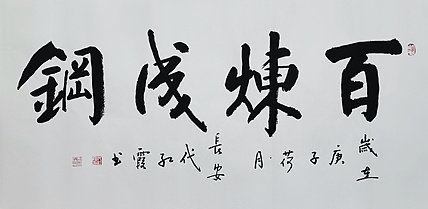 百煉成鋼
歲在庚子荷月長安代紅霞書